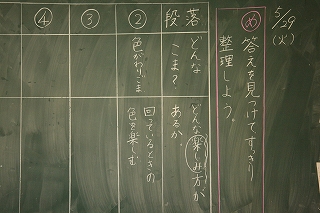 5/29
(火)
め 答えを見つけてすっきり
整理しよう。
段落
どんな
こま?
どんな楽しみ方が
あるか。
②
色がわりごま
回っているときの
色を楽しむ
③
④